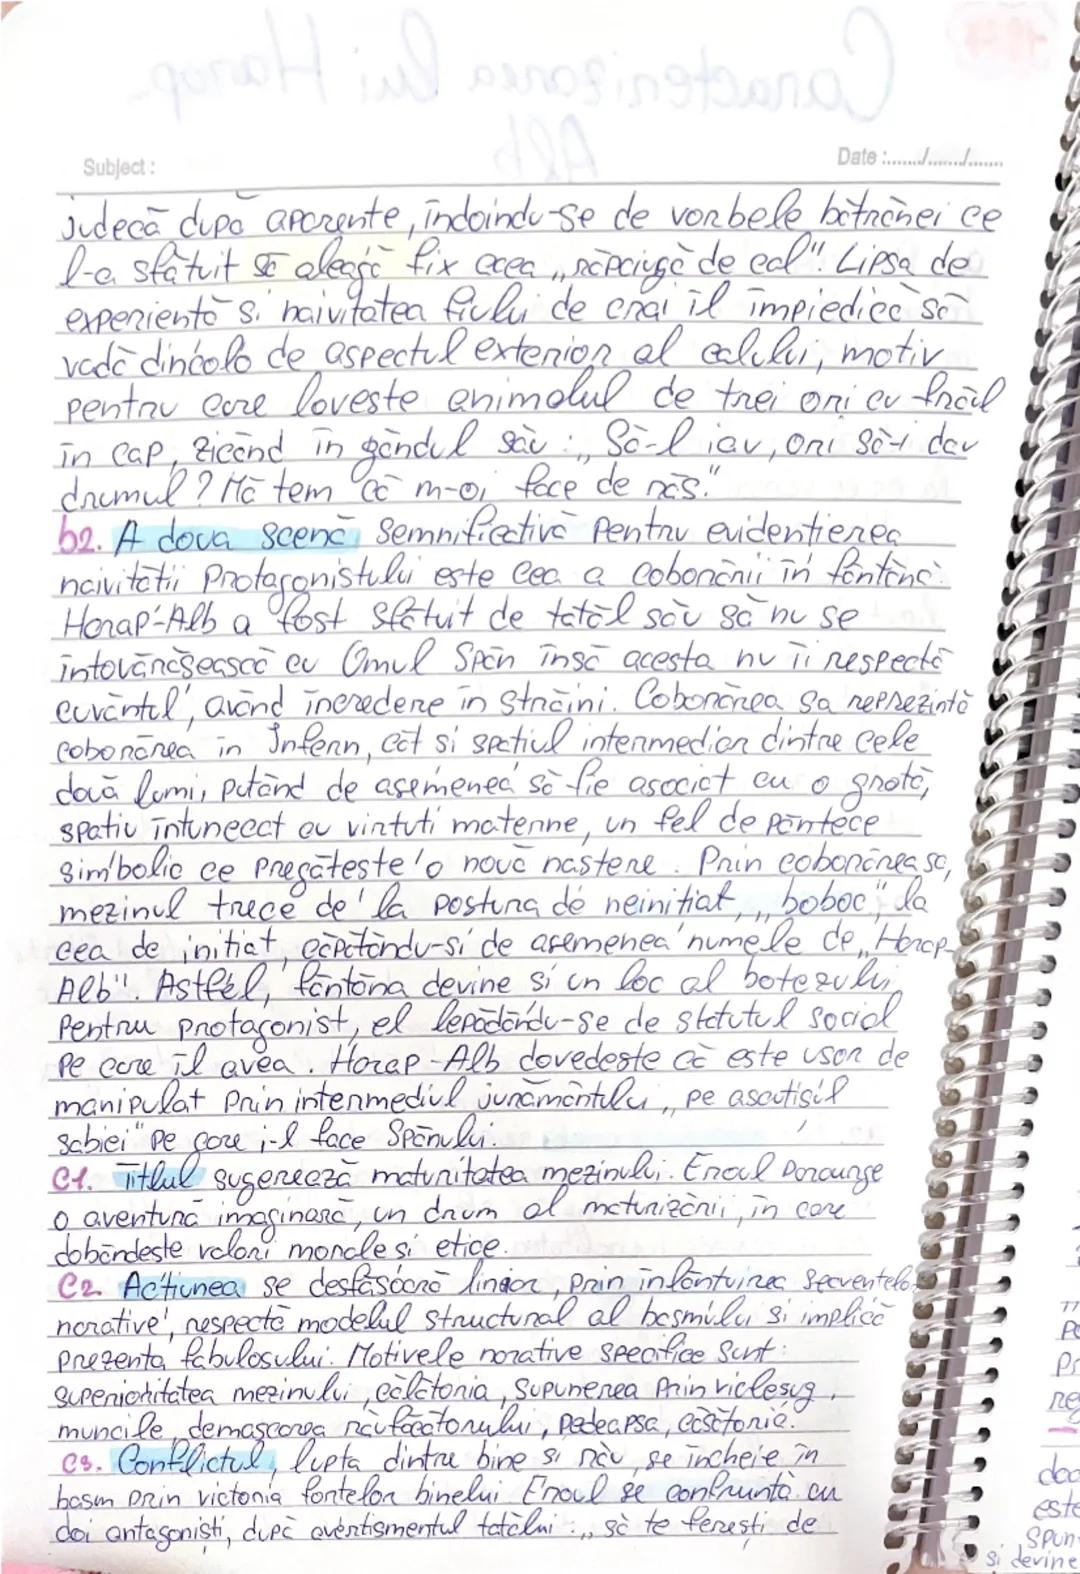 Subject :
Date :....../....../......
judecă după aparențe, îndoindu-se de vorbele bătrânei ce
l-a sfătuit să aleagă fix acea „răpciugă de cal". Lipsa de
experiență și naivitatea fiului de crai îl împiedică să
vadă dincolo de aspectul exterior al calului, motiv
pentru care lovește animalul de trei ori cu frâul
în cap, zicând în gândul său: „Să-l iau, ori să-i dau
drumul? Mă tem că m-oi face de râs."
b2. A doua scenă semnificativă pentru evidențierea
naivității protagonistului este cea a coborârii în fântână.
Harap-Alb a fost sfătuit de tatăl său să nu se
întovărășească cu Omul Spân însă acesta nu îi respectă
cuvântul, având încredere în străini. Coborârea sa reprezintă
coborârea în Infern, cât și spațiul intermediar dintre cele
două lumi, putând de asemenea să fie asociat cu o grotă,
spațiu întunecat cu virtuți materne, un fel de pântece
simbolic ce pregătește o nouă naștere. Prin coborârea sa,
mezinul trece de la postura de neinițiat, „boboc", la
cea de inițiat, căpătându-și de asemenea numele de „Harap-
Alb". Astfel, fântâna devine și un loc al botezului
pentru protagonist, el lepădându-se de statutul social
pe care îl avea. Harap-Alb dovedește că este ușor de
manipulat prin intermediul jurământului „pe ascuțișul
sabiei" pe care i-l face Spânului.
C1. Titlul sugerează maturitatea mezinului. Eroul parcurge
o aventură imaginară, un drum al maturizării, în care
dobândește valori morale și etice.
C2. Acțiunea se desfășoară liniar, prin înlănțuirea secvențelor
narative, respectă modelul structural al basmului și implică
prezența fabulosului. Motivele narative specifice sunt:
superioritatea mezinului, călătoria, supunerea prin vicleșug,
muncile, demascarea răufăcătorului, pedeapsa, căsătoria.
C3. Conflictul, lupta dintre bine și rău, se încheie în
basm prin victoria forțelor binelui. Eroul se confruntă cu
doi antagoniști, după avertismentul tatălui: „să te ferești de
doa
este
spun
și devine